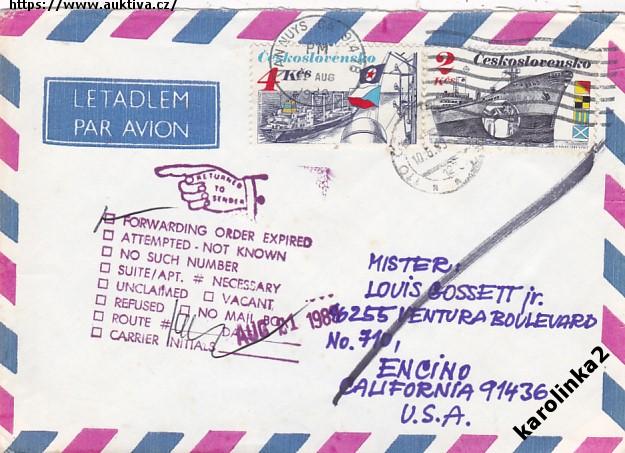 https://www.auktiva.cz/
VAN NUYS, CA 914
PM
AUG
Československo
4 Kčs
Československo
2 Kčs
LETADLEM
PAR AVION
RETURNED
TO
SENDER
FORWARDING ORDER EXPIRED
ATTEMPTED - NOT KNOWN
NO SUCH NUMBER
SUITE/APT. # NECESSARY
UNCLAIMED VACANT
REFUSED NO MAIL BOX
ROUTE #
CARRIER INITIALS
AUG 21 198
MISTER,
LOUIS GOSSETT jr.
16255 VENTURA BOULEVARD
No. 710,
ENCINO
CALIFORNIA 91436
U.S.A.
karolinka2